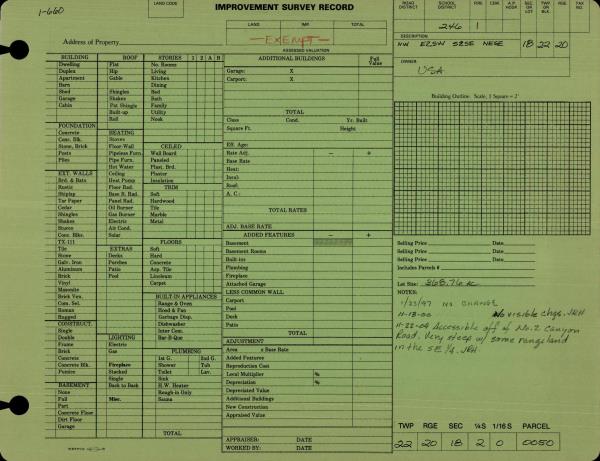 1-660
LAND CODE
IMPROVEMENT SURVEY RECORD
LAND IMP. TOTAL
EXEMPT
ASSESSED VALUATION
Address of Property
ROAD DISTRICT
SCHOOL DISTRICT
CEM.
TAX NO.
246 1
DESCRIPTION
NW E2SW S2SE NESE 18 22 20
OWNER
USA
BUILDING ROOF STORIES 1 2 A B
Dwelling Flat No. Rooms
Duplex Hip Living
Apartment Gable Kitchen
Barn Dining
Shed Shingles Bed
Garage Shakes Bath
Cabin Pat Shingle Family
Built-up Utility
Rod Nook
FOUNDATION
Concrete HEATING
Conc. Blk. Stoves CEILED
Stone, Brick Floor-Wall Wall Board
Posts Pipeless Furn. Paneled
Piles Pipe Furn. Plast. Brd.
Hot Water Plaster
EXT. WALLS Ceiling Insulation
Brd. & Bats Heat Pump TRIM
Rustic Floor Rad. Soft
Shiplap Base B. Rad. Hardwood
Tar Paper Panel Rad. Tile
Cedar Oil Burner Marble
Shingles Gas Burner Metal
Shakes Electric
Stucco Air Cond.
Conc. Blkc. Solar
TX-111 FLOORS
Tile EXTRAS Soft
Stone Decks Hard
Galv. Iron Porches Concrete
Aluminum Patio Asp. Tile
Brick Pool Linoleum
Vinyl Carpet
Masonite
Brick Ven. BUILT-IN APPLIANCES
Com. Sel. Range & Oven
Roman Hood & Fan
Rugged Garbage Disp.
CONSTRUCT. Dishwasher
Single Inter Com.
Double LIGHTING Bar-B-Que
Frame Electric
Brick Gas PLUMBING
Concrete 1st G. 2nd G.
Concrete Blk. Fireplace Shower Tub
Pumice Stacked Toilet Lav.
Single Sink
BASEMENT Back to Back H.W. Heater
None Rough-in Only
Full Misc. Sauna
Part
Concrete Floor
Dirt Floor
Garage
TOTAL
ADDITIONAL BUILDINGS Full Value
Garage: X
Carport: X
TOTAL
Class Cond. Yr. Built
Square Ft. Height
Eff. Age:
Rate Adj. − +
Base Rate
Heat:
Insul:
Roof:
A. C.:
TOTAL RATES
ADJ. BASE RATE
ADDED FEATURES − +
Basement
Basement Rooms
Built-ins
Plumbing
Fireplace
Attached Garage
LESS COMMON WALL
Carport
Pool
Deck
Patio
TOTAL
ADJUSTMENT
Area x Base Rate
Added Features
Reproduction Cost
Local Multiplier %
Depreciation %
Depreciated Value
Additional Buildings
New Construction
Appraised Value
APPRAISER: DATE
WORKED BY: DATE
Building Outline. Scale, 1 Square = 2'
Selling Price Date
Selling Price Date
Selling Price Date
Includes Parcels #
Lot Size: 368.76 ac
NOTES:
1/23/97 NO CHANGE
11-13-00 No visible chgs. JRH
11-22-04 Accessible off of No. 2 Canyon
Road. Very steep w/ some rangeland
in the SE 1/4. JRH.
TWP RGE SEC 1/4S 1/16 S PARCEL
22 20 18 2 0 0050